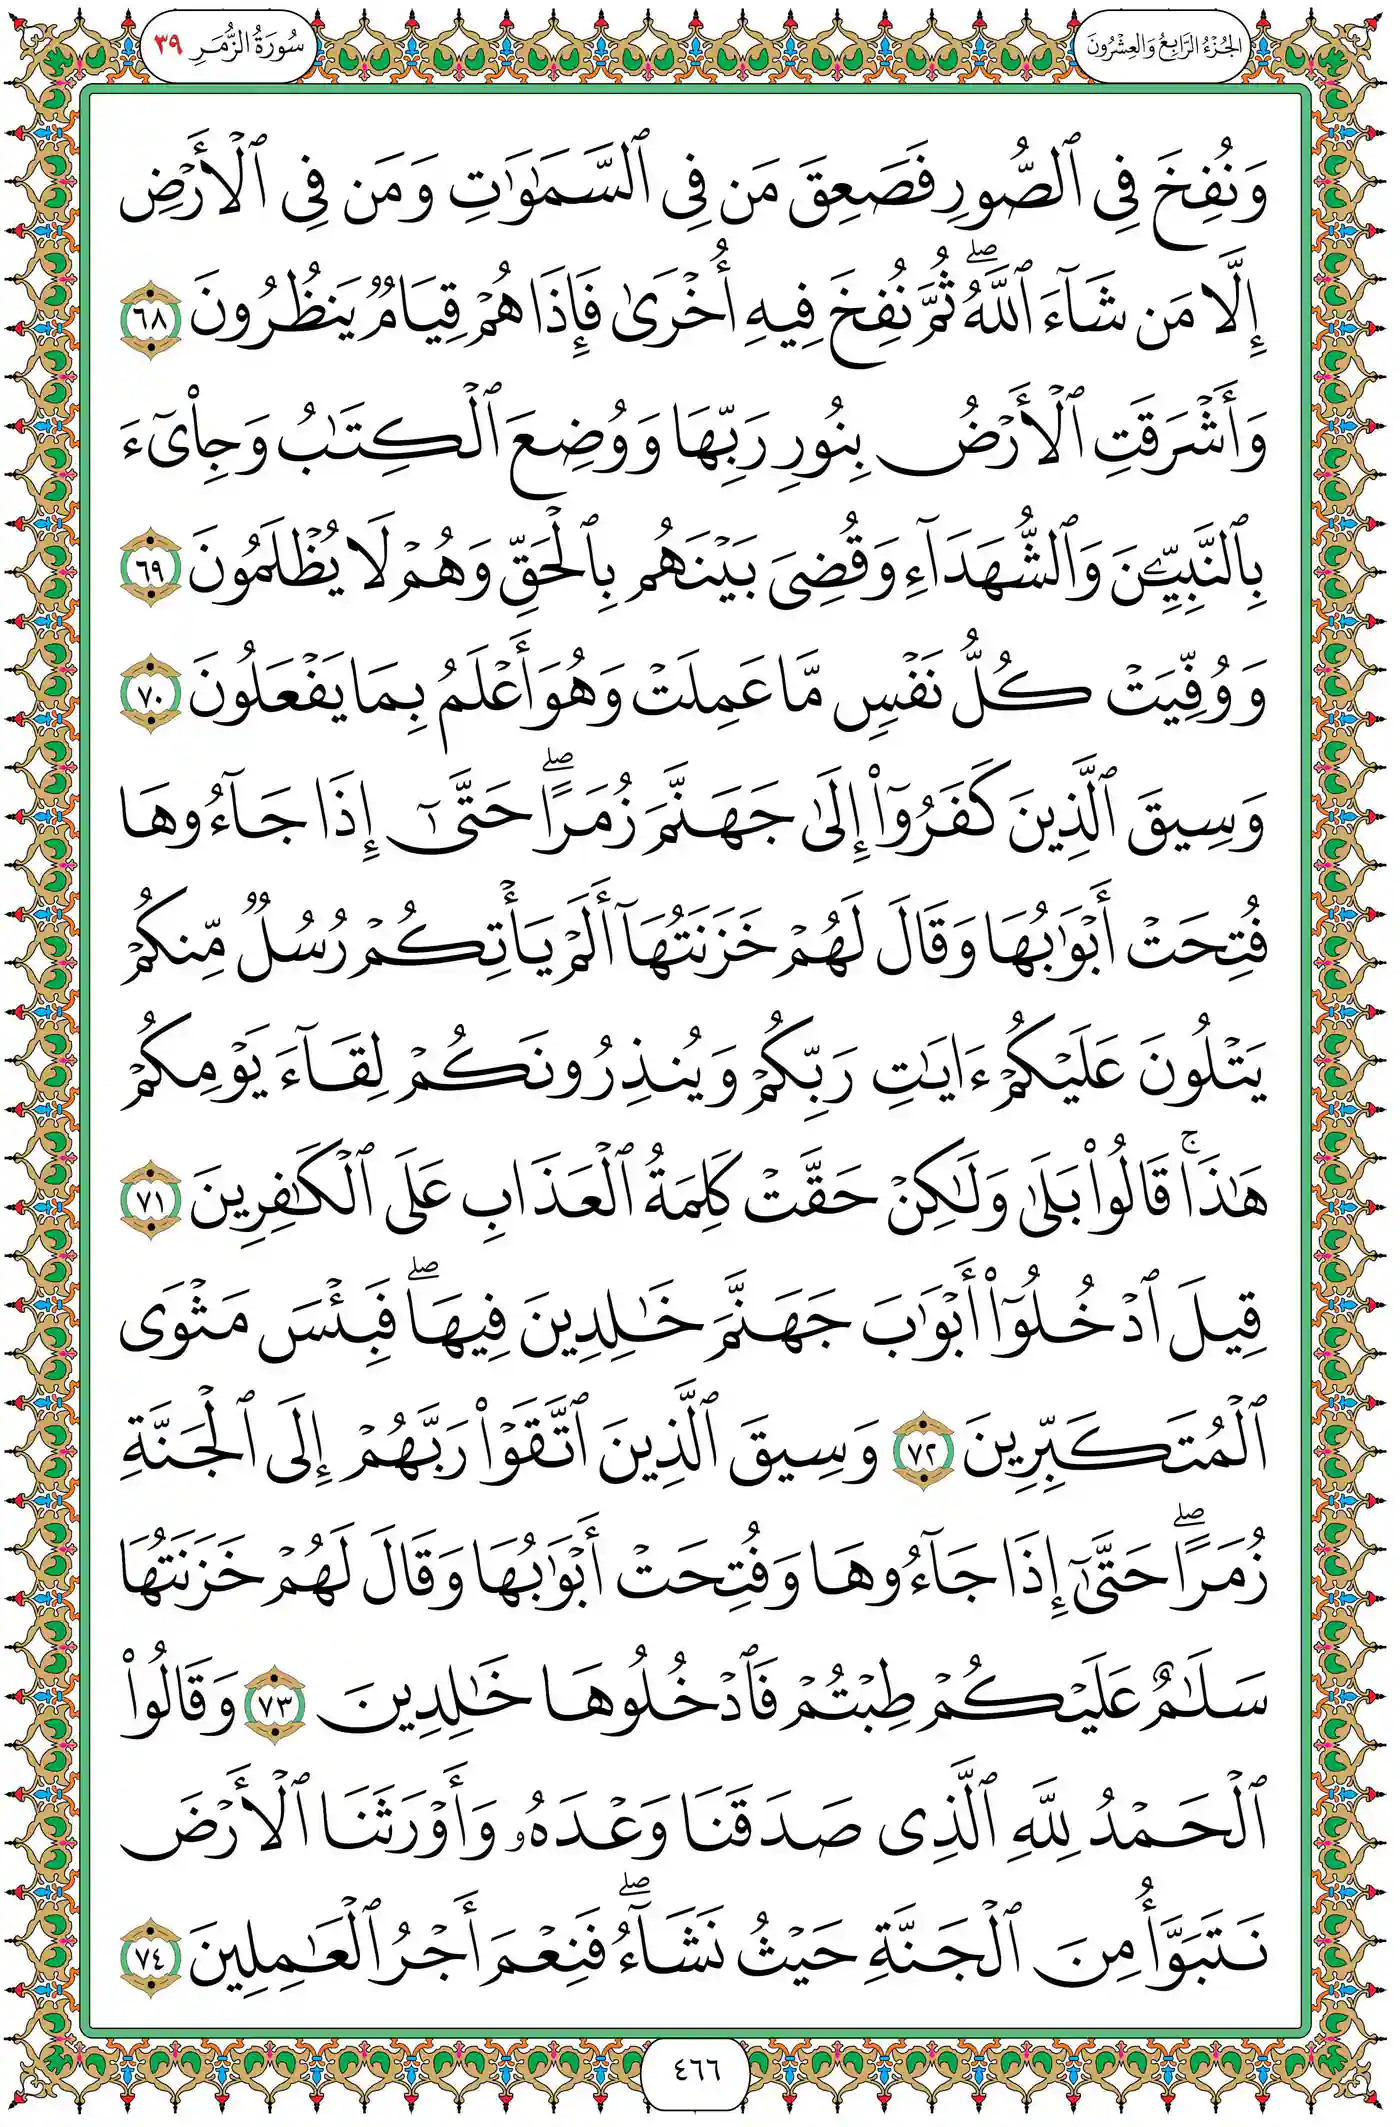 الجُزْءُ الرَّابِعُ وَالعِشْرُونَ
سُورَةُ الزُّمَرِ ٣٩
وَنُفِخَ فِي ٱلصُّورِ فَصَعِقَ مَن فِي ٱلسَّمَٰوَٰتِ وَمَن فِي ٱلْأَرْضِ
إِلَّا مَن شَآءَ ٱللَّهُۖ ثُمَّ نُفِخَ فِيهِ أُخْرَىٰ فَإِذَا هُمْ قِيَامٌ يَنظُرُونَ ٦٨
وَأَشْرَقَتِ ٱلْأَرْضُ بِنُورِ رَبِّهَا وَوُضِعَ ٱلْكِتَٰبُ وَجِاْيٓءَ
بِٱلنَّبِيِّـۧنَ وَٱلشُّهَدَآءِ وَقُضِيَ بَيْنَهُم بِٱلْحَقِّ وَهُمْ لَا يُظْلَمُونَ ٦٩
وَوُفِّيَتْ كُلُّ نَفْسٍ مَّا عَمِلَتْ وَهُوَ أَعْلَمُ بِمَا يَفْعَلُونَ ٧٠
وَسِيقَ ٱلَّذِينَ كَفَرُوٓاْ إِلَىٰ جَهَنَّمَ زُمَرًاۖ حَتَّىٰٓ إِذَا جَآءُوهَا
فُتِحَتْ أَبْوَٰبُهَا وَقَالَ لَهُمْ خَزَنَتُهَآ أَلَمْ يَأْتِكُمْ رُسُلٌ مِّنكُمْ
يَتْلُونَ عَلَيْكُمْ ءَايَٰتِ رَبِّكُمْ وَيُنذِرُونَكُمْ لِقَآءَ يَوْمِكُمْ
هَٰذَاۚ قَالُواْ بَلَىٰ وَلَٰكِنْ حَقَّتْ كَلِمَةُ ٱلْعَذَابِ عَلَى ٱلْكَٰفِرِينَ ٧١
قِيلَ ٱدْخُلُوٓاْ أَبْوَٰبَ جَهَنَّمَ خَٰلِدِينَ فِيهَاۖ فَبِئْسَ مَثْوَى
ٱلْمُتَكَبِّرِينَ ٧٢ وَسِيقَ ٱلَّذِينَ ٱتَّقَوْاْ رَبَّهُمْ إِلَى ٱلْجَنَّةِ
زُمَرًاۖ حَتَّىٰٓ إِذَا جَآءُوهَا وَفُتِحَتْ أَبْوَٰبُهَا وَقَالَ لَهُمْ خَزَنَتُهَا
سَلَٰمٌ عَلَيْكُمْ طِبْتُمْ فَٱدْخُلُوهَا خَٰلِدِينَ ٧٣ وَقَالُواْ
ٱلْحَمْدُ لِلَّهِ ٱلَّذِي صَدَقَنَا وَعْدَهُۥ وَأَوْرَثَنَا ٱلْأَرْضَ
نَتَبَوَّأُ مِنَ ٱلْجَنَّةِ حَيْثُ نَشَآءُۖ فَنِعْمَ أَجْرُ ٱلْعَٰمِلِينَ ٧٤
٤٦٦